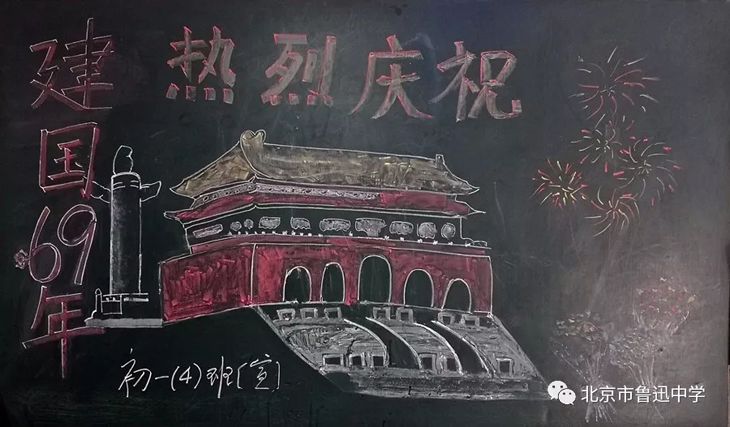 热烈庆祝
建国69年
初一(4)班[宣]
北京市鲁迅中学